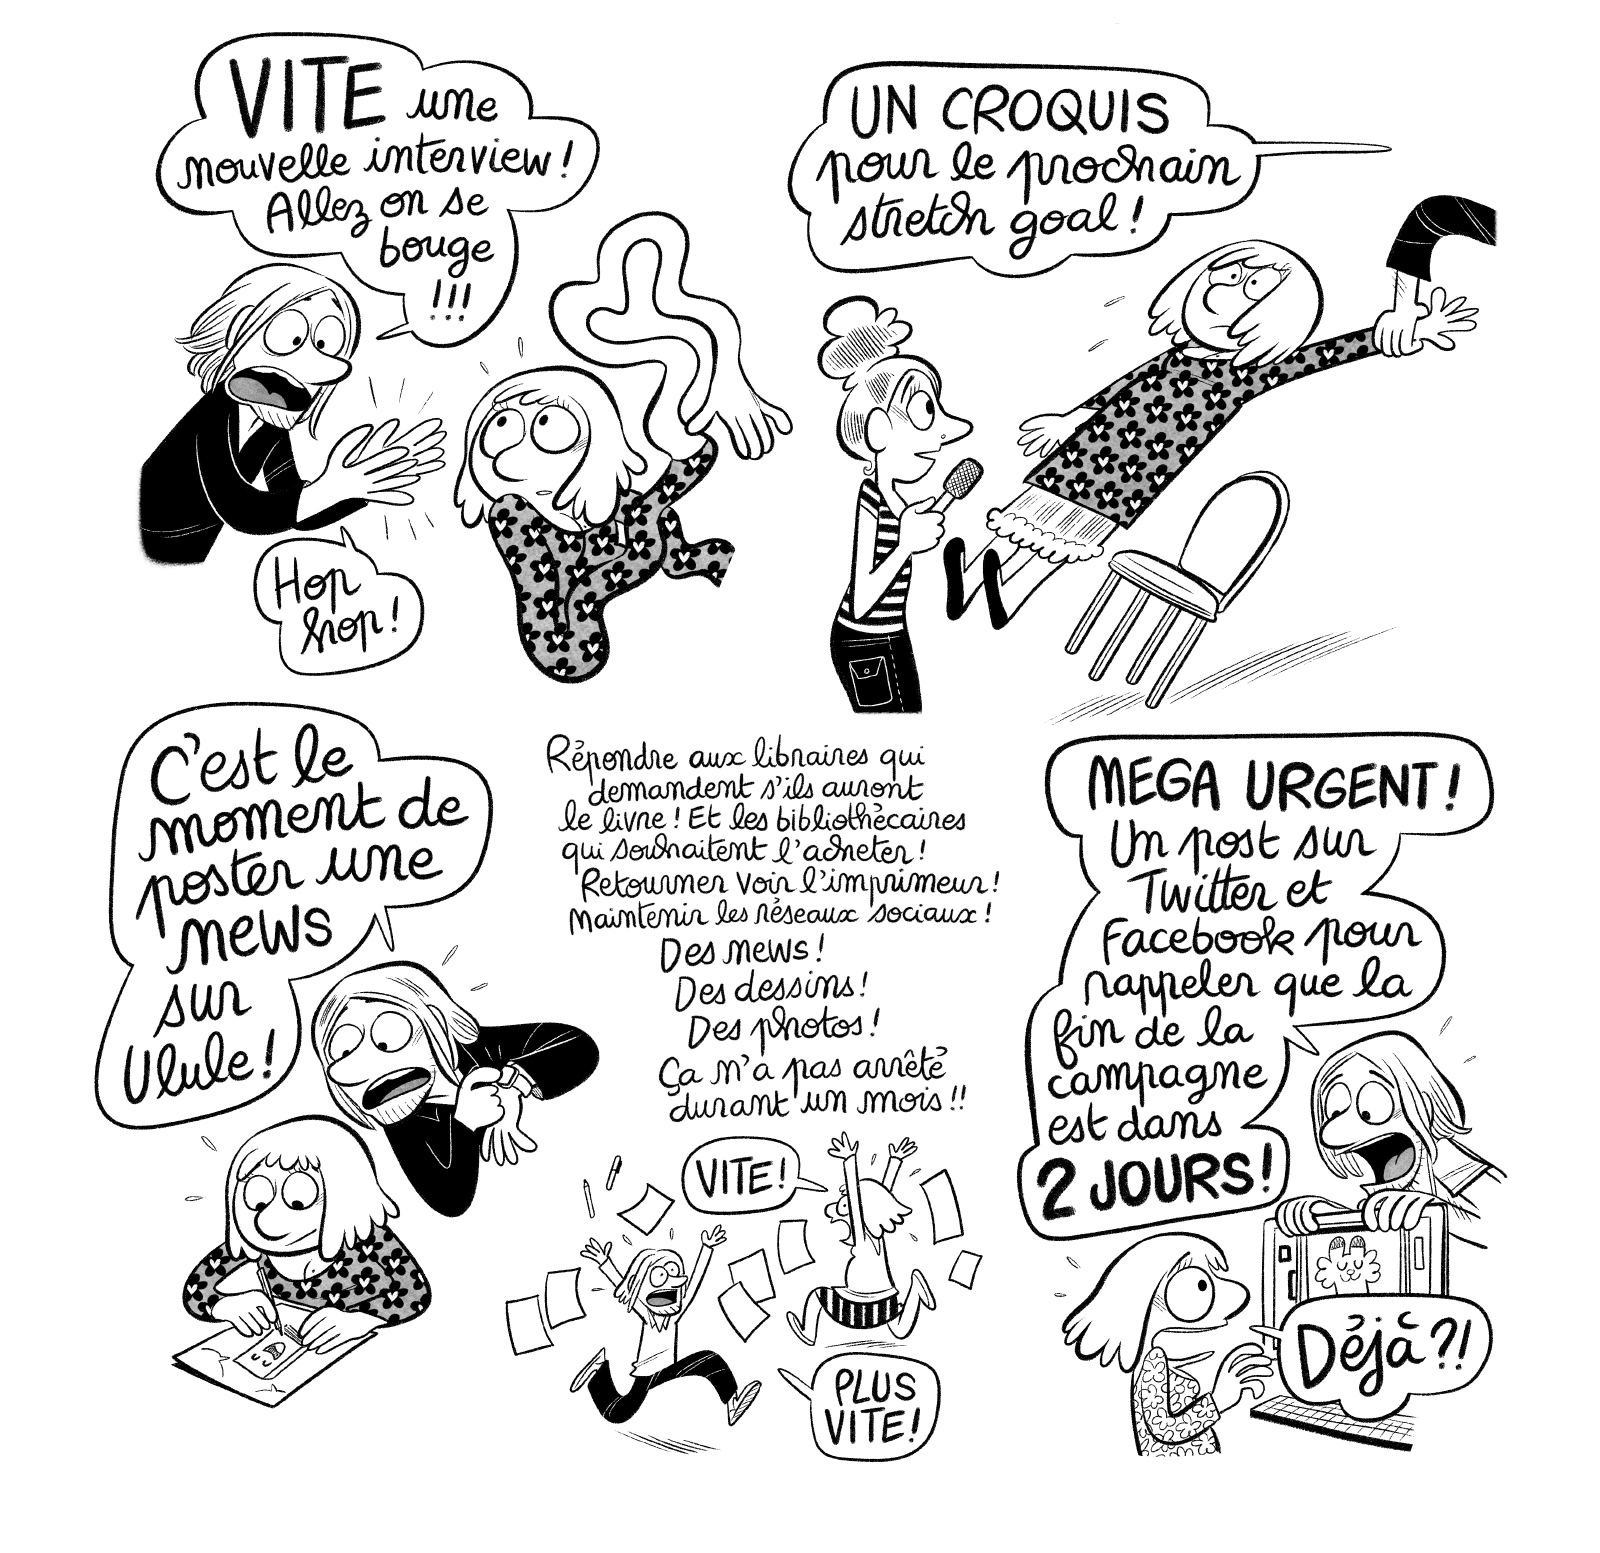 VITE une
nouvelle interview !
Allez on se
bouge
!!!
Hop
hop !
UN CROQUIS
pour le prochain
stretch goal !
C'est le
moment de
poster une
news
sur
Ulule !
Répondre aux libraires qui
demandent s'ils auront
le livre ! Et les bibliothècaires
qui souhaitent l'acheter !
Retourner voir l'imprimeur !
Maintenir les réseaux sociaux !
Des news !
Des dessins !
Des photos !
Ça n'a pas arrêté
durant un mois !!
VITE !
PLUS
VITE !
MEGA URGENT !
Un post sur
Twitter et
Facebook pour
rappeler que la
fin de la
campagne
est dans
2 JOURS !
Déjà ?!